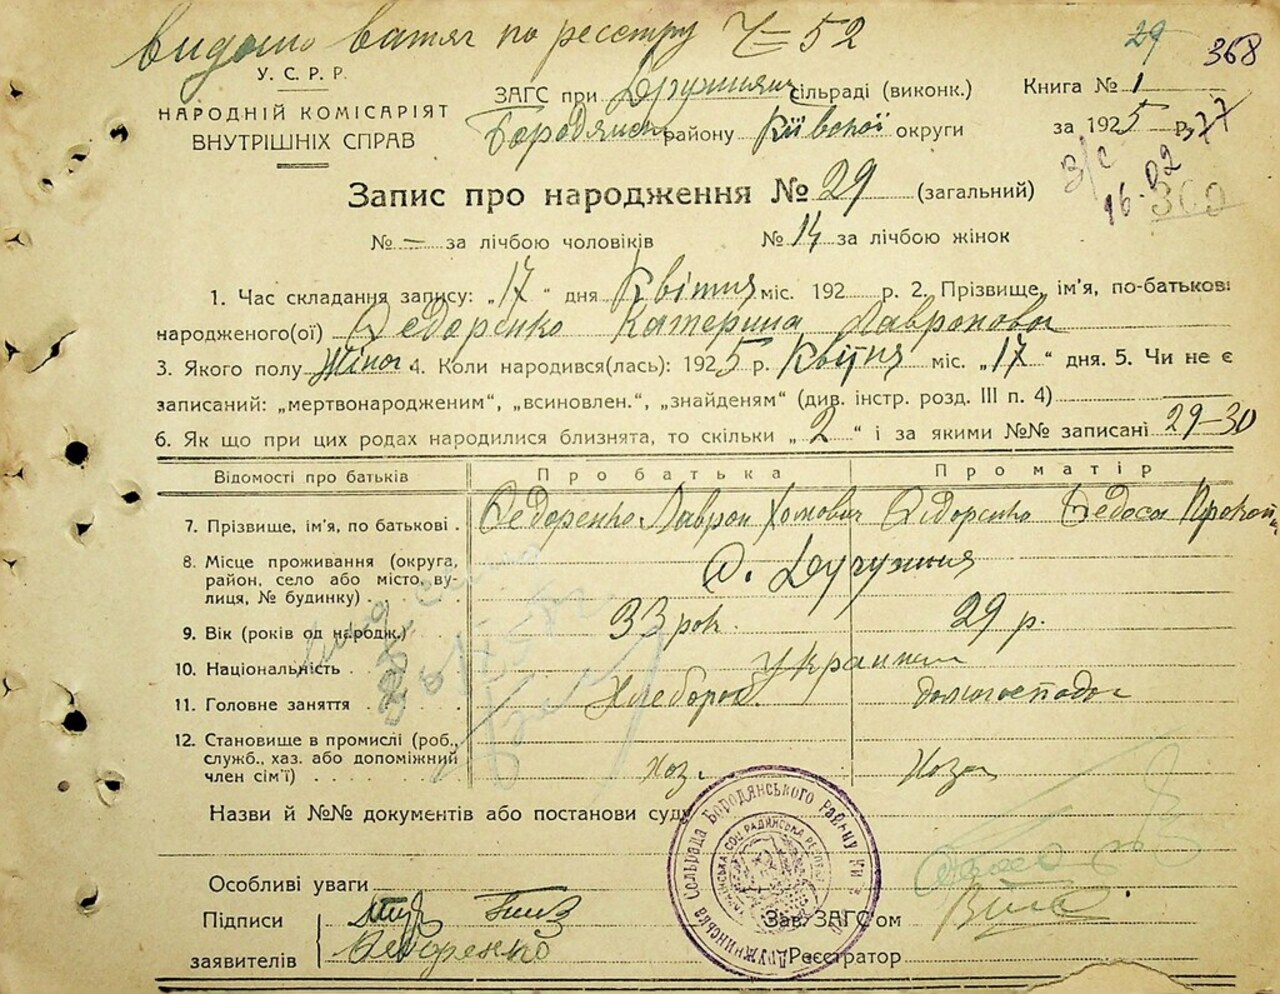 видано витяг по реєстру Ч= 52
29 368
У. С. Р. Р.
НАРОДНІЙ КОМІСАРІЯТ
ВНУТРІШНІХ СПРАВ
ЗАГС при Дружнян сільраді (виконк.)
Бородянськ району Київської округи
Книга № 1
за 1925 р. 377
З/с
16-02 360
Запис про народження № 29 (загальний)
№ — за лічбою чоловіків № 14 за лічбою жінок
1. Час складання запису: „17“ дня Квітня міс. 192 р. 2. Прізвище, ім'я, по-батькові
народженого(ої) Федоренко Катерина Лавронова
3. Якого полу Жіноч 4. Коли народився(лась): 1925 р. Квітня міс. „17“ дня. 5. Чи не є
записаний: „мертвонародженим“, „всиновлен.“, „знайденям“ (див. інстр. розд. III п. 4)
6. Як що при цих родах народилися близнята, то скільки „2“ і за якими №№ записані 29-30
Відомості про батьків Про батька Про матір
7. Прізвище, ім'я, по батькові . Федоренко Лаврон Хомович Федоренко Федося Прокоп
8. Місце проживання (округа,
район, село або місто, ву-
лиця, № будинку) . . . с. Дружня
9. Вік (років од народж.) 33 рок. 29 р.
10. Національність . . . Українці
11. Головне заняття . . . Хлебороб. домогоспода
12. Становище в промислі (роб.,
служб., хаз. або допоміжний
член сім'ї) . . . . Хоз. Хоза
Назви й №№ документів або постанови суду
Особливі уваги
Підписи
заявителів Федоренко
Зав. ЗАГС'ом
Реєстратор
Дружнинська Сільрада Бородянського Району Киів